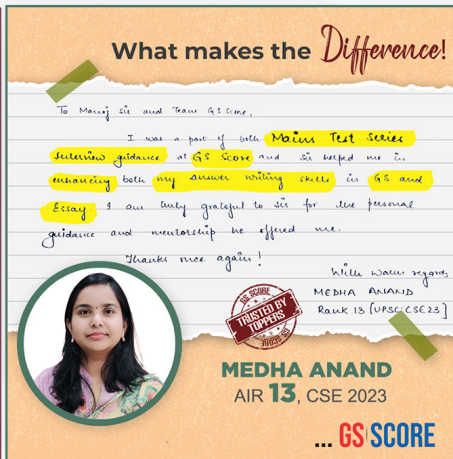 What makes the Difference!
To Manoj Sir and Team GS Score,
I was a part of both Mains Test Series
Interview guidance at GS Score and sir helped me in
enhancing both my answer writing skills in GS and
Essay. I am truly grateful to sir for the personal
guidance and mentorship he offered me.
Thanks once again!
With warm regards
MEDHA ANAND
Rank 13 [UPSC CSE 23]
GS SCORE
TRUSTED BY
TOPPERS
GS SCORE
MEDHA ANAND
AIR 13, CSE 2023
... GS SCORE